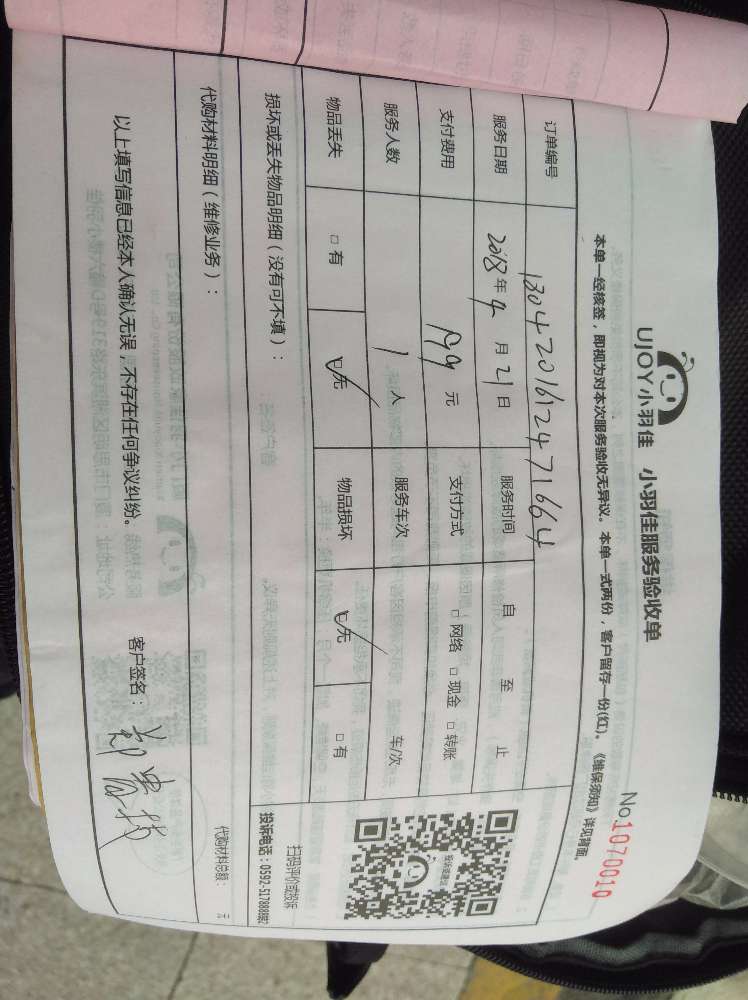 UJOY小羽佳 小羽佳服务验收单
No.1070010
本单一经核签，即视为对本次服务验收无异议。本单一式两份，客户留存一份(红)。《维保须知》详见背面。
订单编号 1804201612471664
服务日期 2018年4月21日 服务时间 自 至 止
支付费用 元 支付方式 □网络 □现金 □转账
服务人数 1人 服务车次 车/次
物品丢失 □有 ☑无 物品损坏 ☑无 □有
损坏或丢失物品明细（没有可不填）：
扫码评价或投诉
投诉电话：0592-5178888转2
代购材料明细（维修业务）：
代购材料总额： 元
以上填写信息已经本人确认无误，不存在任何争议纠纷。 客户签名：